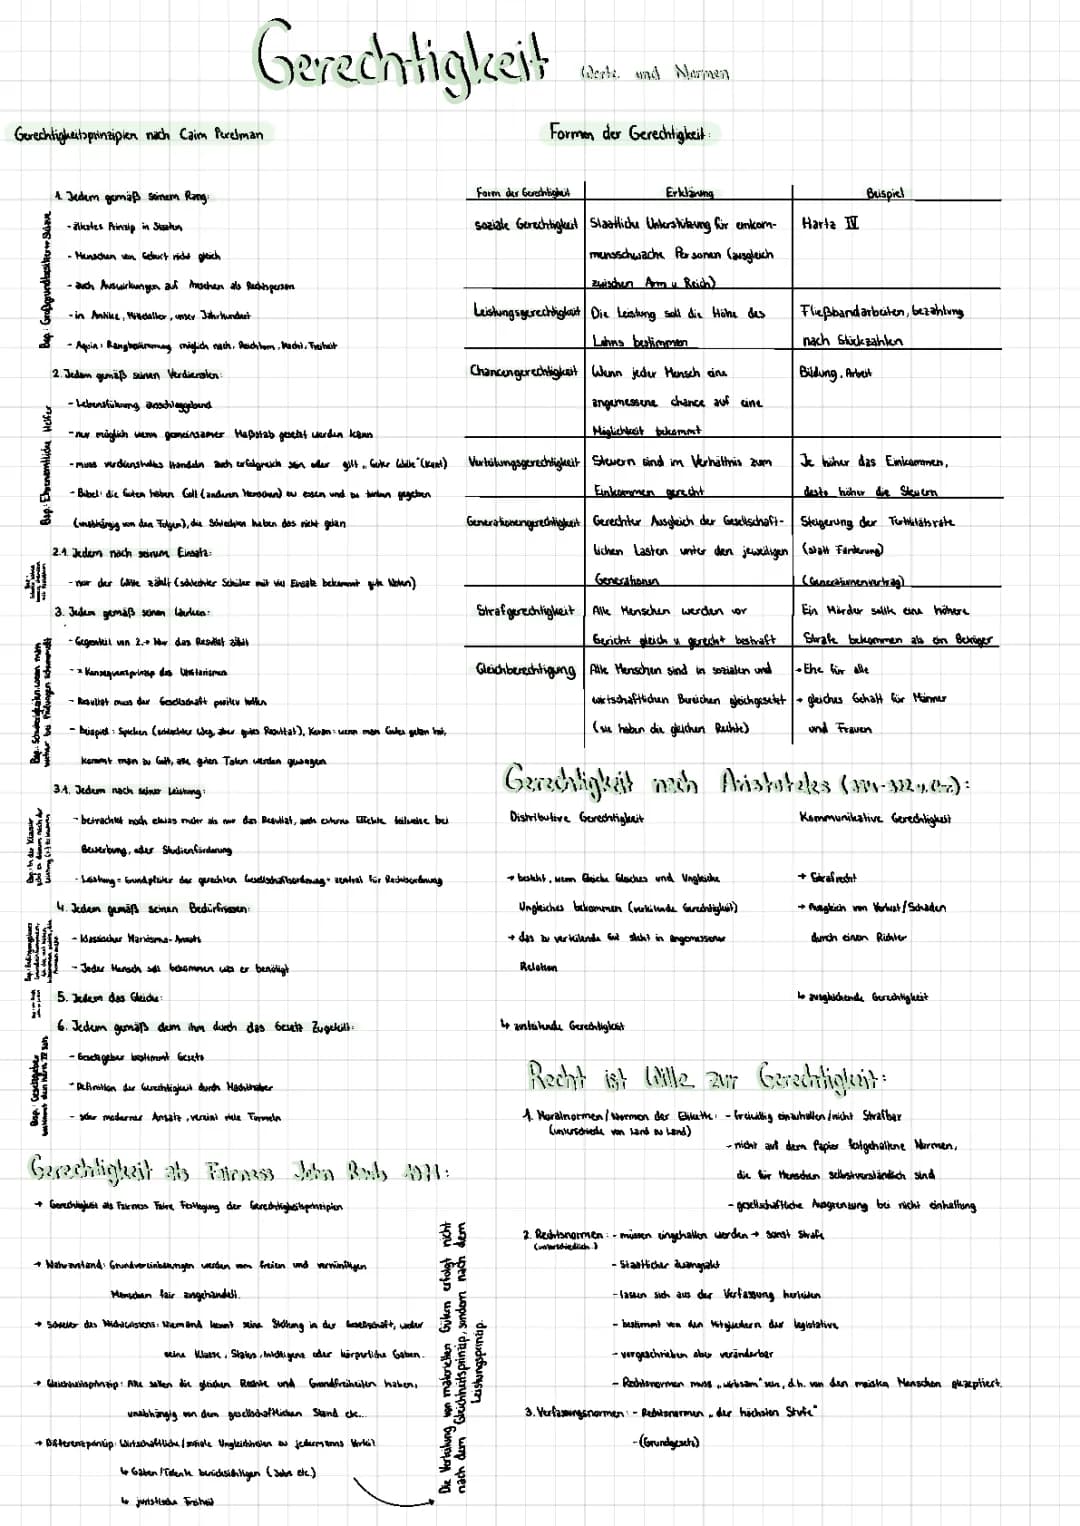 Gerechtigkeit Werte und Normen
Gerechtigkeitsprinzipien nach Caim Perelman
1. Jedem gemäß seinem Rang:
- ältestes Prinzip in Staaten
- Menschen von Geburt nicht gleich
- auch Auswirkungen auf Ansehen als Rechtsperson
- in Antike, Mittelalter, unser Jahrhundert
- Aquin: Rangbestimmung möglich nach, Reichtum, Macht, Freiheit
Bsp.: Großgrundbesitzer ↔ Sklave
2. Jedem gemäß seinen Verdiensten:
- Lebensführung ausschlaggebend
- nur möglich wenn gemeinsamer Maßstab gesetzt werden kann
- muss verdienstvolles Handeln auch erfolgreich sein oder gilt „Guter Wille" (Kant)
- Bibel: die Guten haben Gott (anderen Menschen) zu essen und zu trinken gegeben
(unabhängig von den Folgen), die Schlechten haben das nicht getan
Bsp.: Ehrenamtliche Helfer
2.1 Jedem nach seinem Einsatz:
- nur der Wille zählt (schlechter Schüler mit viel Einsatz bekommt gute Noten)
3. Jedem gemäß seinen Werken:
- Gegenteil von 2. → Nur das Resultat zählt
- = Konsequenzprinzip des Utilitarismus
- Resultat muss der Gesellschaft positiv helfen
- Beispiel: Spicken (schlechter Weg, aber gutes Resultat), Koran: wenn man Gutes getan hat,
kommt man zu Gott, alle guten Taten werden gewogen
3.1. Jedem nach seiner Leistung:
- betrachtet noch etwas mehr als nur das Resultat, auch externe Effekte teilweise bei
Bewerbung, oder Studienförderung
- Leistung = Grundpfeiler der gerechten Gesellschaftsordnung + zentral für Rechtsordnung
4. Jedem gemäß seinen Bedürfnissen:
- klassischer Marxismus-Ansatz
- Jeder Mensch soll bekommen was er benötigt
5. Jedem das Gleiche:
6. Jedem gemäß dem ihm durch das Gesetz Zugeteilte:
- Gesetzgeber bestimmt Gesetz
- Definition der Gerechtigkeit durch Machthaber
- sehr moderner Ansatz, vereint viele Formeln
Bsp.: Gesetzgeber
Gerechtigkeit als Fairness John Rawls 1971:
→ Gerechtigkeit als Fairness Faire Festlegung der Gerechtigkeitsprinzipien
→ Naturzustand: Grundvereinbarungen werden von freien und vernünftigen
Menschen fair ausgehandelt.
→ Schleier des Nichtwissens: Niemand kennt seine Stellung in der Gesellschaft, weder
seine Klasse, Status, Intelligenz oder körperliche Gaben.
→ Gleichheitsprinzip: Alle sollen die gleichen Rechte und Grundfreiheiten haben,
unabhängig von dem gesellschaftlichen Stand etc...
→ Differenzprinzip: Wirtschaftliche/soziale Ungleichheiten zu jedermanns Vorteil
↳ Gaben/Talente berücksichtigen (Jobs etc.)
↳ juristische Freiheit
Die Verteilung von materiellen Gütern erfolgt nicht
nach dem Gleichheitsprinzip, sondern nach dem
Leistungsprinzip.
Formen der Gerechtigkeit:
Form der Gerechtigkeit Erklärung Beispiel
soziale Gerechtigkeit Staatliche Unterstützung für einkom- Hartz IV
mensschwache Personen (ausgleich
zwischen Arm u Reich)
Leistungsgerechtigkeit Die Leistung soll die Höhe des Fließbandarbeiten, bezahlung
Lohns bestimmen nach Stückzahlen
Chancengerechtigkeit Wenn jeder Mensch eine Bildung, Arbeit
angemessene chance auf eine
Möglichkeit bekommt
Verteilungsgerechtigkeit Steuern sind im Verhältnis zum Je höher das Einkommen,
Einkommen gerecht desto höher die Steuern
Generationengerechtigkeit Gerechter Ausgleich der Gesellschaft- Steigerung der
lichen Lasten unter den jeweiligen (statt Förderung)
Generationen (Generationenvertrag)
Strafgerechtigkeit Alle Menschen werden vor Ein Mörder sollte eine höhere
Gericht gleich u gerecht bestraft Strafe bekommen als ein Betrüger
Gleichberechtigung Alle Menschen sind in sozialen und → Ehe für alle
wirtschaftlichen Bereichen gleichgesetzt → gleiches Gehalt für Männer
(sie haben die gleichen Rechte) und Frauen
Gerechtigkeit nach Aristoteles (384-322 v.Chr.):
Distributive Gerechtigkeit
→ besteht, wenn Gleiche Gleiches und Ungleiche
Ungleiches bekommen (verteilende Gerechtigkeit)
→ das zu verteilende Gut steht in angemessener
Relation
↳ austeilende Gerechtigkeit
Kommunikative Gerechtigkeit
→ Strafrecht
→ Ausgleich von Verlust/Schaden
durch einen Richter
↳ ausgleichende Gerechtigkeit
Recht ist Wille zur Gerechtigkeit:
1. Moralnormen/Normen der Etikette: - freiwillig einzuhalten/nicht Strafbar
(unterschiede von Land zu Land)
- nicht auf dem Papier festgehaltene Normen,
die für Menschen selbstverständlich sind
- gesellschaftliche Ausgrenzung bei nicht einhaltung
2. Rechtsnormen: - müssen eingehalten werden → sonst Strafe
(unterschiedlich!)
- Staatlicher Zwangsakt
- lassen sich aus der Verfassung herleiten
- bestimmt von den Mitgliedern der legislative
- vorgeschrieben aber veränderbar
- Rechtsnormen muss „wirksam" sein, d.h. von den meisten Menschen akzeptiert.
3. Verfassungsnormen: - Rechtsnormen „der höchsten Stufe"
- (Grundgesetz)